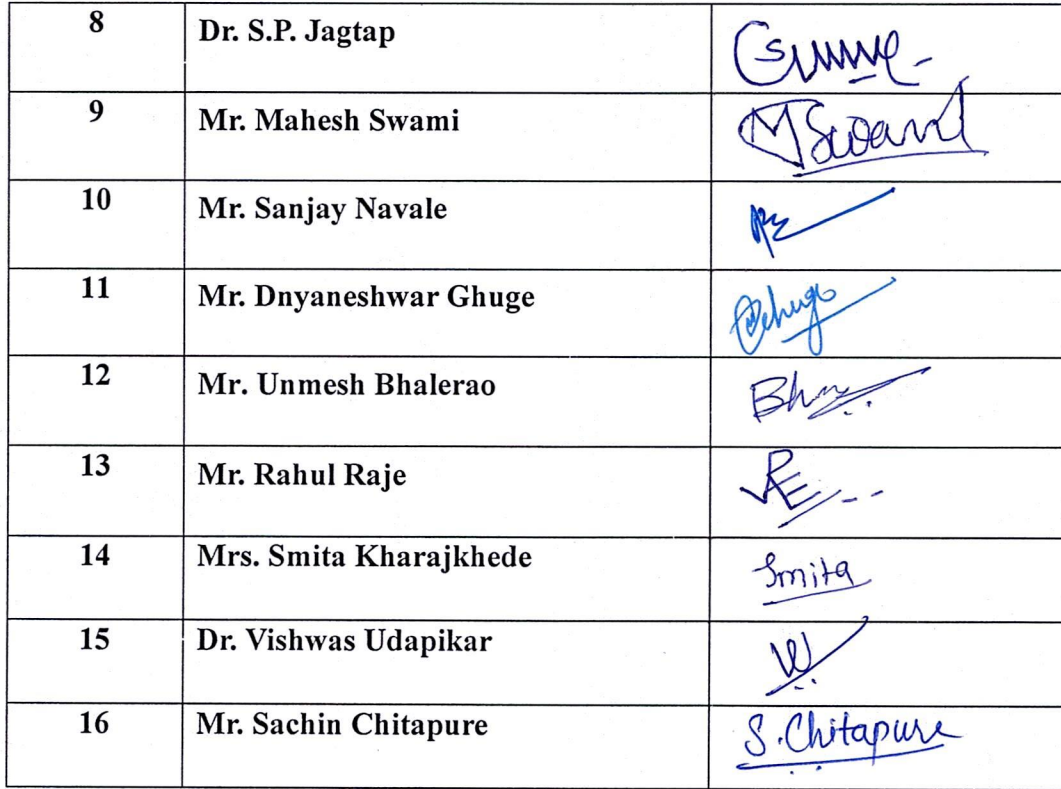 8 Dr. S.P. Jagtap
9 Mr. Mahesh Swami MSwami
10 Mr. Sanjay Navale
11 Mr. Dnyaneshwar Ghuge Ghuge
12 Mr. Unmesh Bhalerao
13 Mr. Rahul Raje
14 Mrs. Smita Kharajkhede Smita
15 Dr. Vishwas Udapikar
16 Mr. Sachin Chitapure S.Chitapure